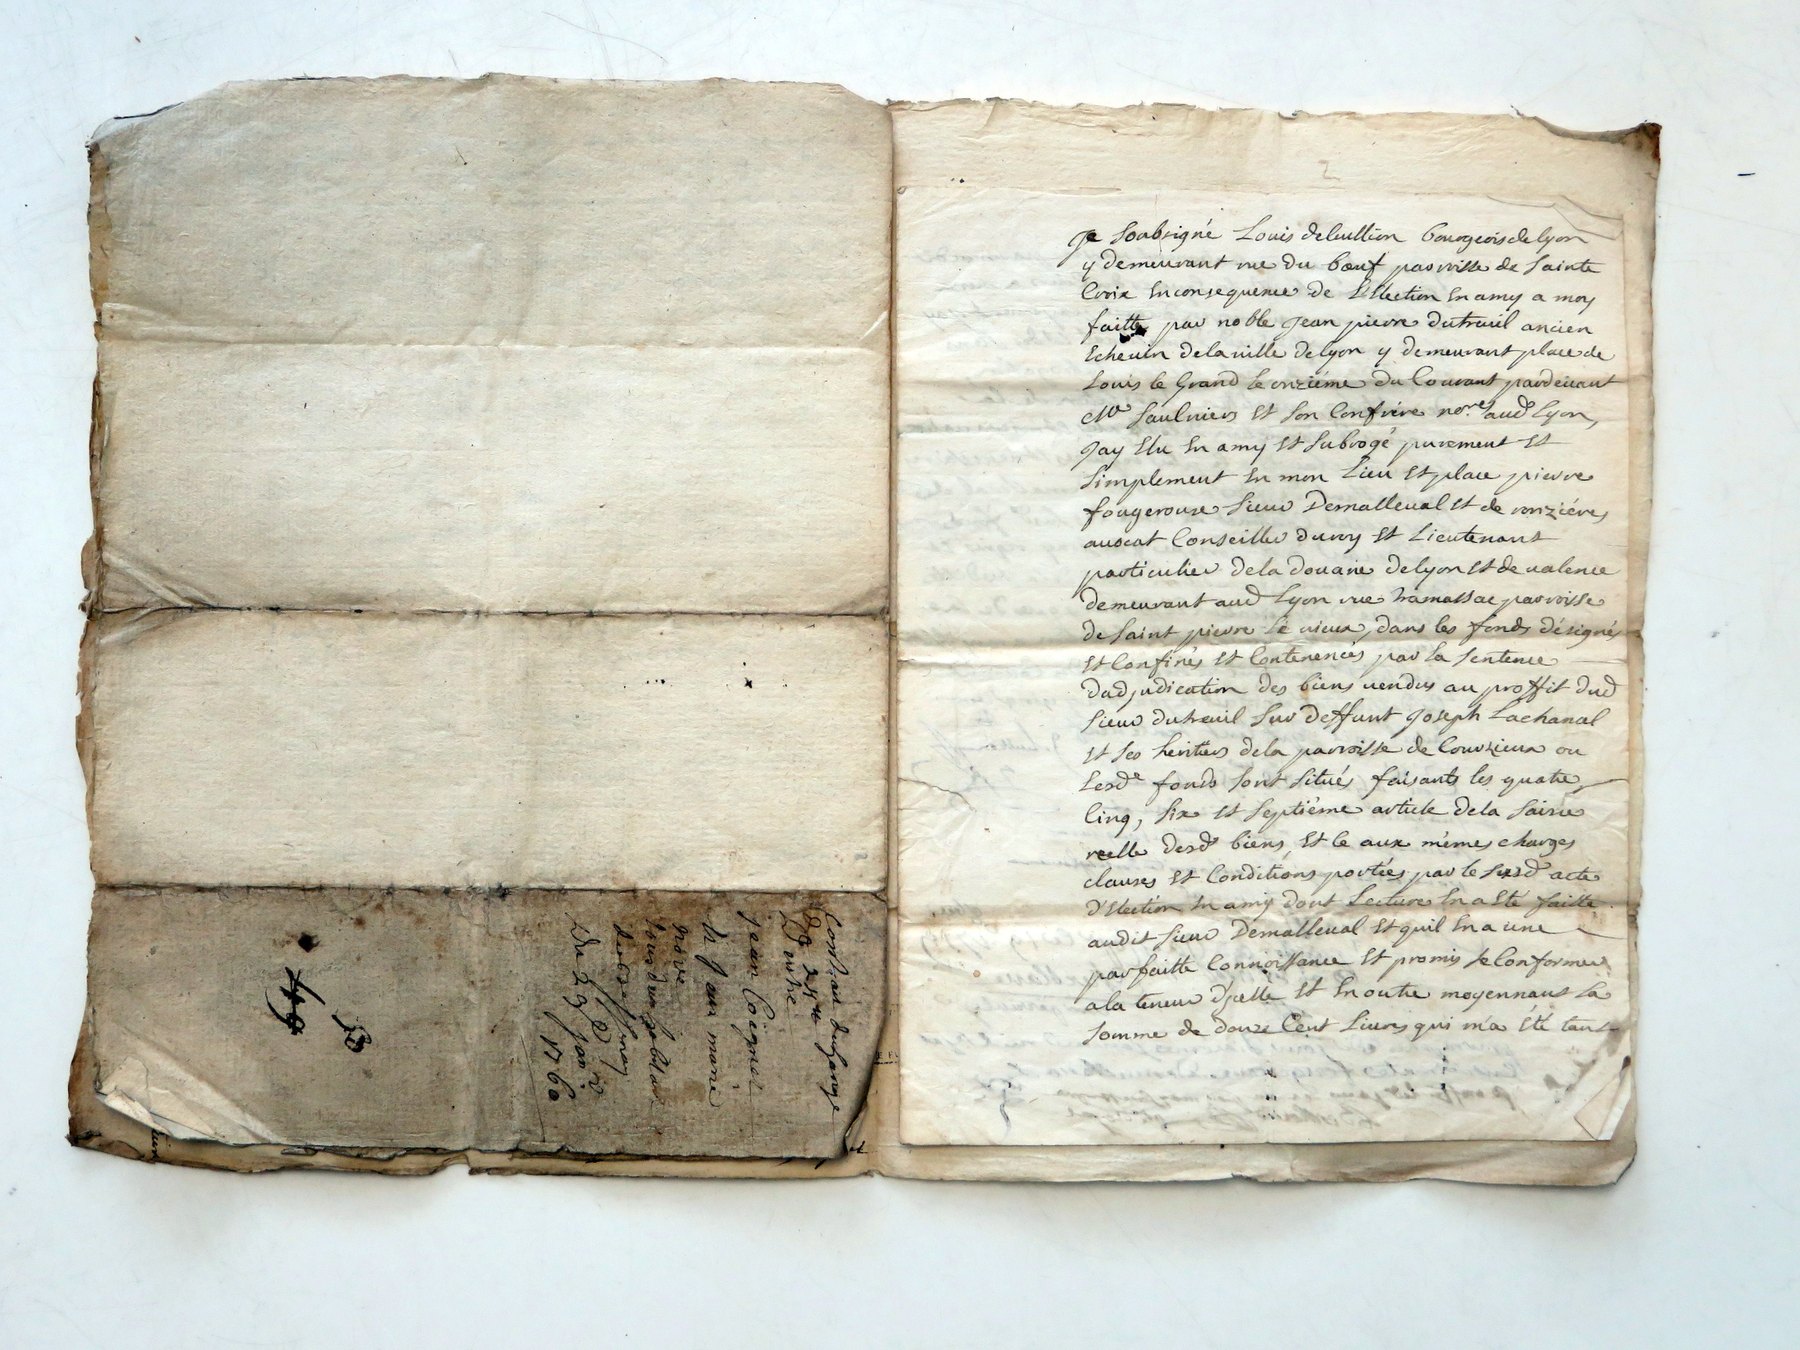 2
Je Soubsigné Louis deluullion bourgeois de lyon
y demeurant rue du bœuf parroisse de Sainte
Croix En consequence de L'Election En amy a moy
faitte par noble Jean pierre dutreuil ancien
Echevin de la ville de lyon y demeurant place de
Louis le Grand le onziéme du Courant pardevant
Me Saulniers Et Son Confrère nore aud Lyon,
Jay Elu En amy Et Subrogé purement Et
Simplement En mon Lieu Et place pierre
fougerouse Sieur Demalleval Et de ronziéres
avocat Conseiller du roy Et Lieutenant
particulier de la douane de lyon Et de valence
demeurant aud Lyon rue tramassac parroisse
de Saint pierre Le vieux, dans les fonds désignés
Et Confinés Et Contenencés par la Sentence
dadjudication des biens vendus au proffit dud
Sieur dutreuil Sur deffunt Joseph Lachanal
Et Ses heritiers de la parroisse de Courzieux ou
Lesde fonds Sont Situés faisants les quatre,
Cinq, Six Et Septiéme article de la Saisie
reelle desds biens, Et ce aux mêmes charges
clauses Et Conditions portées par le Susd acte
d'Election En amy dont Lecture En a Eté faitte
audit Sieur Demalleval Et quil En a une
parfaitte Connoissance Et promis Se Conformer
a la teneur d'jcelle Et En outre moyennant La
Somme de douze Cent Livres qui m'a Eté tant
Dentre
Jean Coignet
noire
Du 29 1760